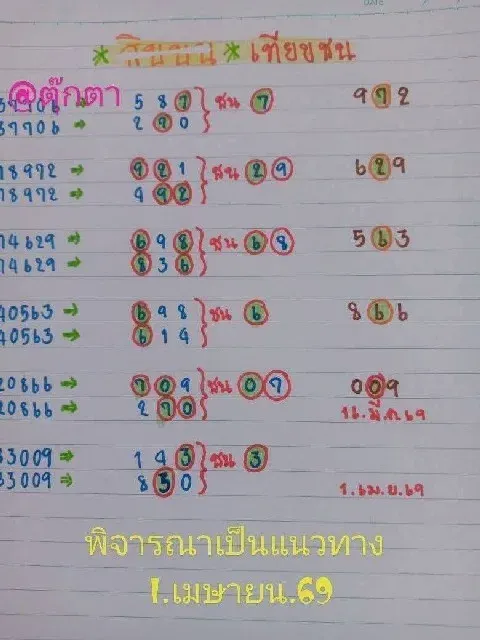 * สิบชน * เทียบชน
@ตุ๊กตา
37706 → 5 8 7 ชน 7 972
37706 → 2 9 0
78972 → 9 2 1 ชน 2 9 629
78972 → 4 9 2
74629 → 6 9 8 ชน 6 8 563
74629 → 8 3 6
40563 → 6 9 8 ชน 6 866
40563 → 6 1 4
20866 → 7 0 9 ชน 0 7 009
20866 → 2 7 0 16.มี.ค.69
33009 → 1 4 3 ชน 3
33009 → 8 3 0 1.เม.ย.69
พิจารณาเป็นแนวทาง
1.เมษายน.69